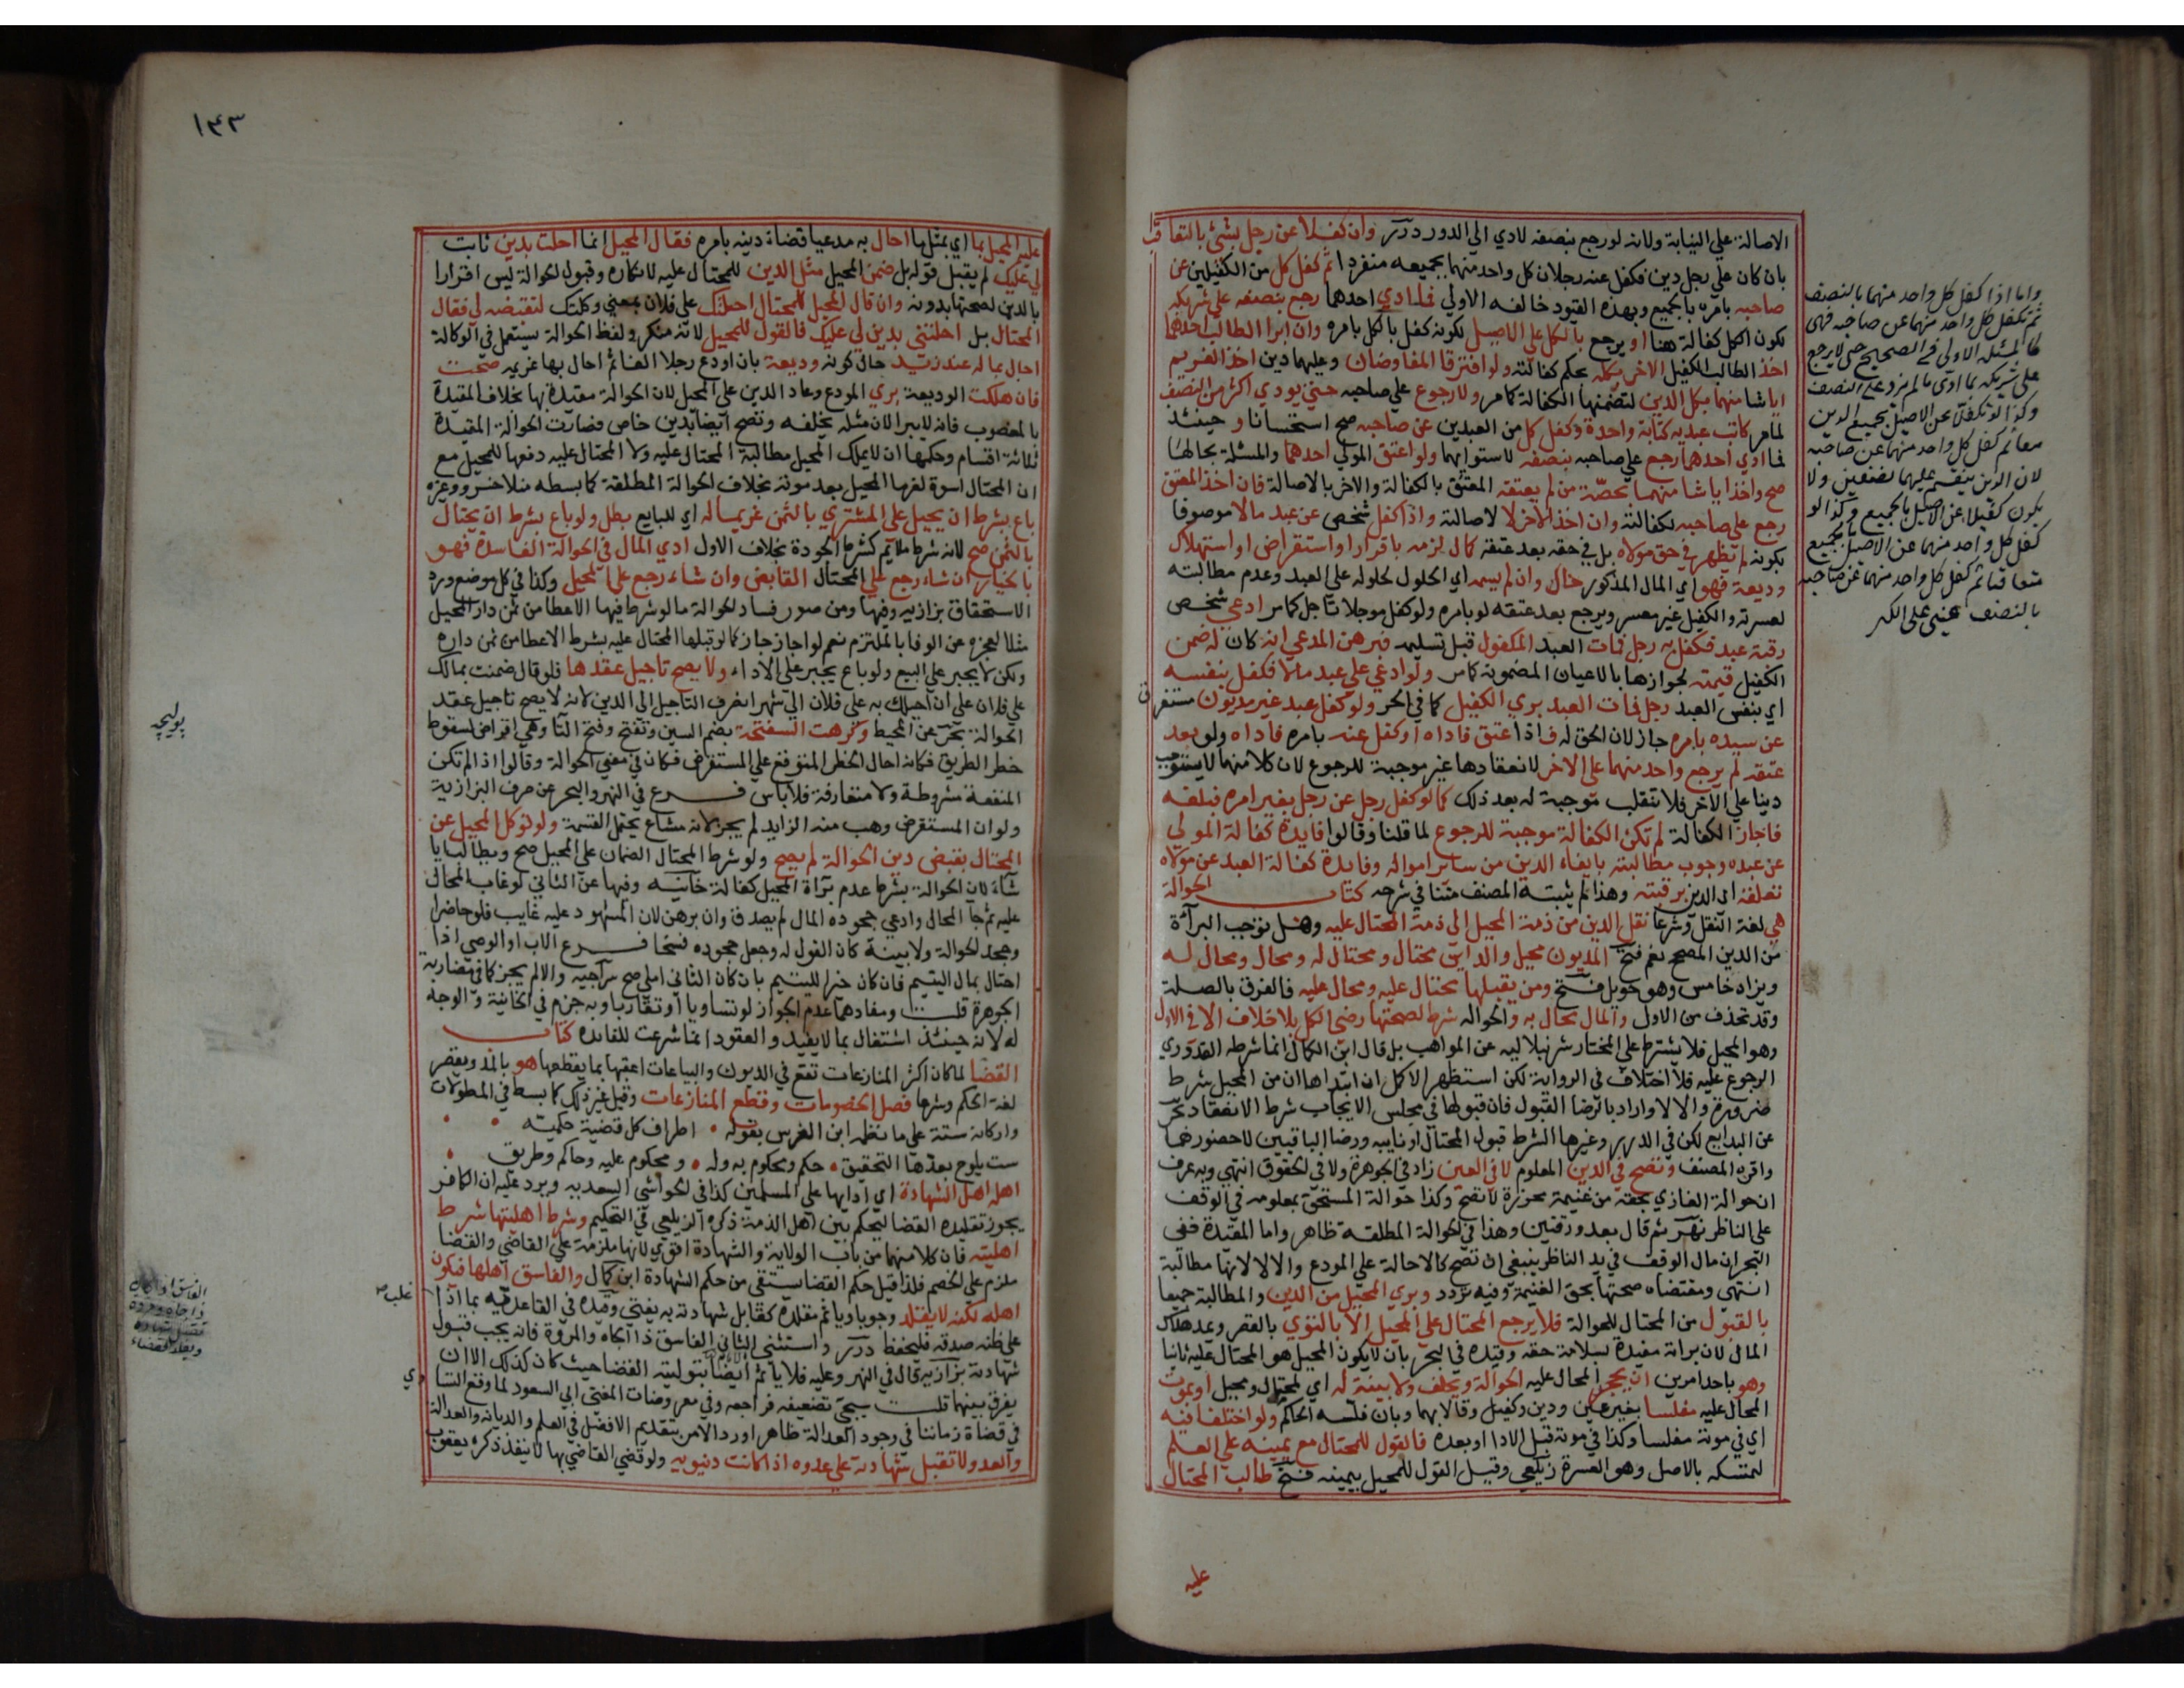 الاصالة علي النيابة ولانه لو رجع بنصفه لادي الي الدور درر وان كفلا عن رجل بشيء بالتعاقب
بان كان علي رجل دين فكفل عنه رجلان كل واحد منهما بجميعه منفردا ثم كفل كل من الكفيلين عن
صاحبه بامره بالجميع وبهذه القيود خالفه الاولي فما ادي احدهما رجع بنصفه علي شريكه
لكون الكل كفالة هنا او يرجع بالكل علي الاصيل لكونه كفل بالكل بامره وان ابرا الطالب احدهما
اخذ الطالب الكفيل الاخر بكله بحكم كفالته ولو افترقا المفاوضان وعليهما دين اخذ الغريم
ايا شا منهما بكل الدين لتضمنها الكفالة كما مر ولا رجوع علي صاحبه حتي يودي اكثر من النصف
لما مر كاتب عبديه كتابة واحدة وكفل كل من العبدين عن صاحبه صح استحسانا وحينئذ
فما ادي احدهما رجع علي صاحبه بنصفه لاستوايهما ولو اعتق المولي احدهما والمسئلة بحالها
صح واخذ ايا شا منهما بحصة من لم يعتقه المعتق بالكفالة والاخر بالاصالة فان اخذ المعتق
رجع علي صاحبه لكفالته وان اخذ الاخر لا لاصالته واذا كفل شخص عن عبد مالا موصوفا
بكونه لم يظهر في حق مولاه بل في حقه بعد عتقه كمال لزمه باقرار او استقراض او استهلاك
وديعة فهو اي المال المذكور حال وان لم يسمه اي الحلول لحلوله علي العبد وعدم مطالبته
لعسرته والكفيل غير معسر ويرجع بعد عتقه لو بامره ولو كفل موجلا تاجل كما مر ادعي شخص
رقبة عبد فكفل به رجل فمات العبد المكفول قبل تسليمه فبرهن المدعي انه كان له ضمن
الكفيل قيمته لجوازها بالاعيان المضمونه كما مر ولو ادعي علي عبد مالا فكفل بنفسه
اي بنفس العبد رجل فمات العبد بري الكفيل كما في الحر ولو كفل عبد غير مديون مستغرق
عن سيده بامره جاز لان الحق له فاذا اعتق فاداه او كفل عنه بامره فاداه ولو بعد
عتقه لم يرجع واحد منهما علي الاخر لانعقادها غير موجبة للرجوع لان كلا منهما لا يستوجب
دينا علي الاخر فلا تنقلب موجبة له بعد ذلك كما لو كفل رجل عن رجل بغير امره فبلغه
فاجاز الكفالة لم تكن الكفالة موجبة للرجوع لما قلنا وقالوا فايدة كفالة المولي
عن عبده وجوب مطالبته بايفاء الدين من ساير امواله وفايدة كفالة العبد عن مولاه
تعلقه اي الدين برقبته وهذا لم يثبته المصنف متنا في شرحه كتاب الحوالة
هي لغة النقل وشرعا نقل الدين من ذمة المحيل الي ذمة المحتال عليه وهل توجب البرآءة
من الدين المصحح نعم فتح المديون محيل والداين محتال ومحتال له ومحال ومحال له
ويزاد خامس وهو حويل فتح ومن يقبلها محتال عليه ومحال عليه فالفرق بالصلة
وقد تحذف من الاول والمال محال به والحواله شرط لصحتها رضي الكل بلا خلاف الا في الاول
وهو المحيل فلا يشترط علي المختار شرنبلاليه عن المواهب بل قال ابن الكمال انما شرطه القدوري
للرجوع عليه فلا اختلاف في الرواية لكن استظهر الاكمل ان ابتداها ان من المحيل شرط
ضرورة والا لا واراد بالرضا القبول فان قبولها في مجلس الايجاب شرط الانعقاد بحر
عن البدايع لكن في الدرر وغيرها الشرط قبول المحتال او نايبه ورضا الباقيين لا حضورهما
واقره المصنف وتصح في الدين المعلوم لا في العين زاد في الجوهرة ولا في الحقوق انتهي وبه عرف
ان حوالة الغازي بحقه من غنيمة محرزة لا تصح وكذا حوالة المستحق بمعلومه في الوقف
علي الناظر نهر ثم قال بعد ورقتين وهذا في الحوالة المطلقة ظاهر واما المقيدة ففي
البحر ان مال الوقف في يد الناظر ينبغي ان تصح كالاحالة علي المودع والا لا لانها مطالبة
انتهي ومقتضاه صحتها بحق الغنيمة وفيه تردد وبري المحيل من الدين والمطالبة جميعا
بالقبول من المحتال للحوالة فلا يرجع المحتال علي المحيل الا بالتوي بالقصر ويمد هلاك
المال لان برائة مقيدة بسلامة حقه وقيده في البحر بان لا يكون المحيل هو المحتال عليه ثانيا
وهو باحد امرين ان يجحد المحال عليه الحوالة ويحلف ولا بينة له اي لمحتال ومحيل او يموت
المحال عليه مفلسا بغير عين ودين وكفيل وقالا بهما وبان فلسه الحاكم ولو اختلفا فيه
اي في موته مفلسا وكذا في موته قبل الادا او بعده فالقول للمحتال مع يمينه علي العلم
لتمسكه بالاصل وهو العسرة زيلعي وقيل القول للمحيل بيمينه فتح طالب المحتال
عليه
واما اذا كفل كل واحد منهما بالنصف
ثم تكفل كل واحد منهما عن صاحبه فهي
كالمسئلة الاولي في الصحيح حتي لا يرجع
علي شريكه بما ادي ما لم يزد علي النصف
وكذا لو تكفلا عن الاصيل بجميع الدين
معا ثم كفل كل واحد منهما عن صاحبه
لان الدين ينقسم عليهما نصفين ولا
يكون كفيلا عن الاصيل بالجميع وكذا لو
كفل كل واحد منهما عن الاصيل بالجميع
متعاقبا ثم كفل كل واحد منهما عن صاحبه
بالنصف عيني علي الكنز
١٤٣
عليه المحيل بما اي بمثل ما احال به مدعيا قضاء دينه بامره فقال المحيل انما احلت بدين ثابت
لي عليك لم يقبل قوله بل ضمن المحيل مثل الدين للمحتال عليه لانكاره وقبول الحوالة ليس اقرارا
بالدين لصحتها بدونه وان قال المحيل للمحتال احلتك علي فلان بمعني وكلتك لتقبضه لي فقال
المحتال بل احلتني بدين لي عليك فالقول للمحيل لانه منكر ولفظ الحوالة يستعمل في الوكالة
احال بما له عند زيد حال كونه وديعة بان اودع رجلا الفا ثم احال بها غريمه صحت
فان هلكت الوديعة بري المودع وعاد الدين علي المحيل لان الحوالة مقيدة بها بخلاف المقيدة
بالمغصوب فانه لا يبرا لان مثله يخلفه وتصح ايضا بدين خاص فصارت الحوالة المقيدة
ثلاثة اقسام وحكمها ان لا يملك المحيل مطالبة المحتال عليه ولا المحتال عليه دفعها للمحيل مع
ان المحتال اسوة لغرما المحيل بعد موته بخلاف الحوالة المطلقة كما بسطه منلاخسرو وغيره
باع بشرط ان يحيل علي المشتري بالثمن غريما له اي للبايع بطل ولو باع بشرط ان يحتال
بالثمن صح لانه شرط ملايم كشرط الجودة بخلاف الاول ادي المال في الحوالة الفاسدة فهو
بالخيار ان شاء رجع علي المحتال القابض وان شاء رجع علي المحيل وكذا في كل موضع ورد
الاستحقاق بزازيه وفيها ومن صور فساد الحوالة ما لو شرط فيها الاعطا من ثمن دار المحيل
مثلا لعجزه عن الوفا بالملتزم نعم لو اجاز جاز كما لو قبلها المحتال عليه بشرط الاعطا من ثمن داره
ولكن لا يجبر علي البيع ولو باع يجبر علي الاداء ولا يصح تاجيل عقدها فلو قال ضمنت بمالك
علي فلان علي ان احيلك به علي فلان الي شهر انصرف التاجيل الي الدين لانه لا يصح تاجيل عقد
الحوالة بحر عن المحيط وكرهت السفتجة بضم السين وتفتح وفتح التا وهي اقراض لسقوط
خطر الطريق فكانه احال الخطر المتوقع علي المستقرض فكان في معني الحوالة وقالوا اذا لم تكن
المنفعة مشروطة ولا متعارفة فلا باس فرع في النهر والبحر عن صرف البزازية
ولو ان المستقرض وهب منه الزايد لم يجز لانه مشاع يحتمل القسمة ولو توكل المحيل عن
المحتال بقبض دين الحوالة لم يصح ولو شرط المحتال الضمان علي المحيل صح ويطالب ايا
شاء لان الحوالة بشرط عدم براة المحيل كفالة خانيه وفيها عن الثاني لو غاب المحال
عليه ثم جآ المحال وادعي جحوده المال لم يصدق وان برهن لان المشهود عليه غايب فلو حاضرا
وجحد الحوالة ولا بينة كان القول له وجعل جحوده فسخا فرع الاب او الوصي اذا
احتال بمال اليتيم فان كان خيرا لليتيم بان كان الثاني املي صح سراجيه والا لم يجز كما في مضاربة
الجوهرة قلت ومفادهما عدم الجواز لو تساويا او تقاربا وبه جزم في الخانية والوجه
له لانه حينئذ اشتغال بما لا يفيد والعقود انما شرعت للفايده كتاب
القضا لما كان اكثر المنازعات تقع في الديون والبياعات اعقبها بما يقطعها هو بالمد ويقصر
لغة الحكم وشرعا فصل الخصومات وقطع المنازعات وقيل غير ذلك كما بسط في المطولات
واركانه ستة علي ما نظمه ابن الغرس بقوله اطراف كل قضية حكميه
ست يلوح بعدها التحقيق حكم ومحكوم به وله ومحكوم عليه وحاكم وطريق
اهله اهل الشهادة اي ادايها علي المسلمين كذا في الحواشي السعديه ويرد عليه ان الكافر
يجوز تقليده القضا ليحكم بين اهل الذمة ذكره الزيلعي في التحكيم وشرط اهليتها شرط
اهليته فان كلا منهما من باب الولاية والشهادة اقوي لانها ملزمة علي القاضي والقضا
ملزم علي الخصم فلذا قيل حكم القضا يستقي من حكم الشهادة ابن كمال والفاسق اهلها فيكون
اهله لكنه لا يقلد وجوبا وياثم مقلده كقابل شهادته به يفتي وقيده في القاعديه بما اذا
علي ظنه صدقه فليحفظ درر واستثني الثاني الفاسق ذا الجاه والمروة فانه يجب قبول
شهادته بزازيه قال في النهر وعليه فلا ياثم ايضا بتوليته القضا حيث كان كذلك الا ان
يفرق بينهما قلت سيجيء تضعيفه فراجعه وفي معروضات المفتي ابي السعود لما وقع التساوي
في قضاة زماننا في وجود العدالة ظاهرا ورد الامر بتقديم الافضل في العلم والديانه والعدالة
والعدو لا تقبل شهادته علي عدوه اذا كانت دنيويه ولو قضي القاضي بها لا ينفذ ذكره يعقوب
بوليجه
غلب صح